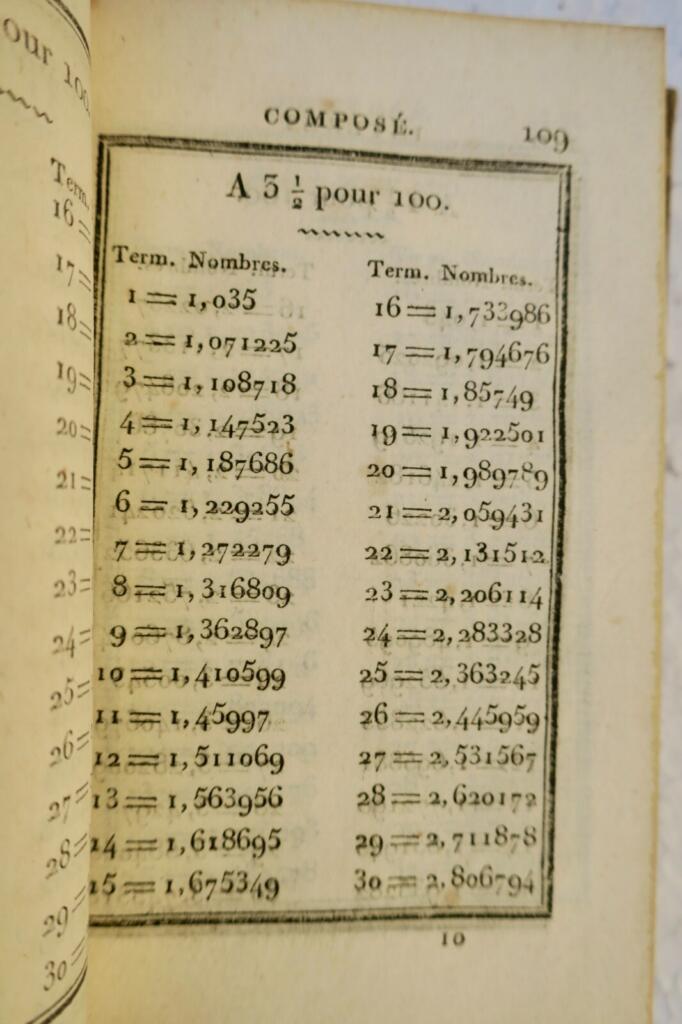 our 100
COMPOSÉ. 109
A 3 ½ pour 100.
Term. Nombres.
1 = 1,035
2 = 1,071225
3 = 1,108718
4 = 1,147523
5 = 1,187686
6 = 1,229255
7 = 1,272279
8 = 1,316809
9 = 1,362897
10 = 1,410599
11 = 1,45997
12 = 1,511069
13 = 1,563956
14 = 1,618695
15 = 1,675349
Term. Nombres.
16 = 1,733986
17 = 1,794676
18 = 1,85749
19 = 1,922501
20 = 1,989789
21 = 2,059431
22 = 2,131512
23 = 2,206114
24 = 2,283328
25 = 2,363245
26 = 2,445959
27 = 2,531567
28 = 2,620172
29 = 2,711878
30 = 2,806794
10
Term.
16=
17=
18=
19=
20=
21=
22=
23=
24=
25=
26=
27=
28=
29=
30=